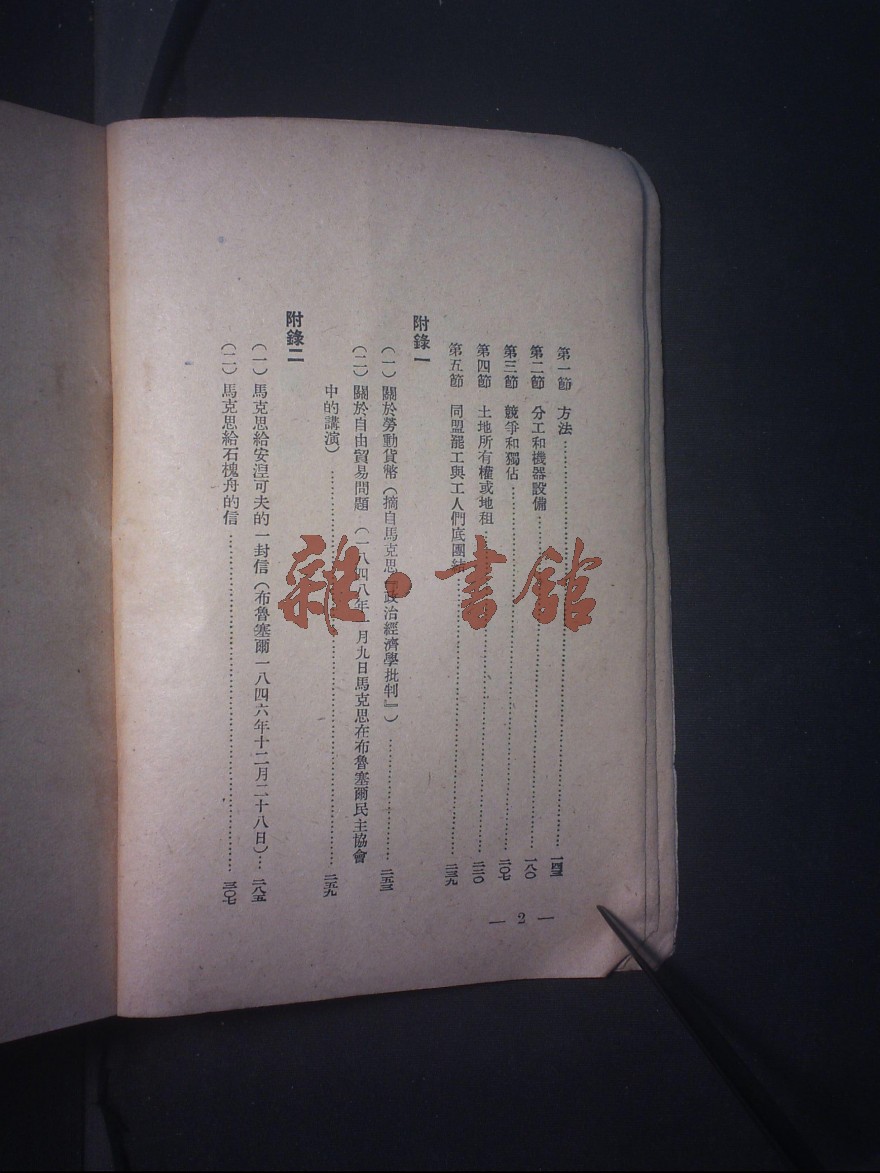 第一節 方法……一四三
第二節 分工和機器設備……一八〇
第三節 競爭和獨佔……二〇七
第四節 土地所有權或地租……二二〇
第五節 同盟罷工與工人們底團結……二三九
附錄一
(一)關於勞動貨幣(摘自馬克思『政治經濟學批判』)……二五三
(二)關於自由貿易問題 (一八四八年一月九日馬克思在布魯塞爾民主協會
中的講演)……二五九
附錄二
(一)馬克思給安湼可夫的一封信(布魯塞爾一八四六年十二月二十八日)…二八五
(二)馬克思給石槐舟的信……三〇七
— 2 —
雜·書館